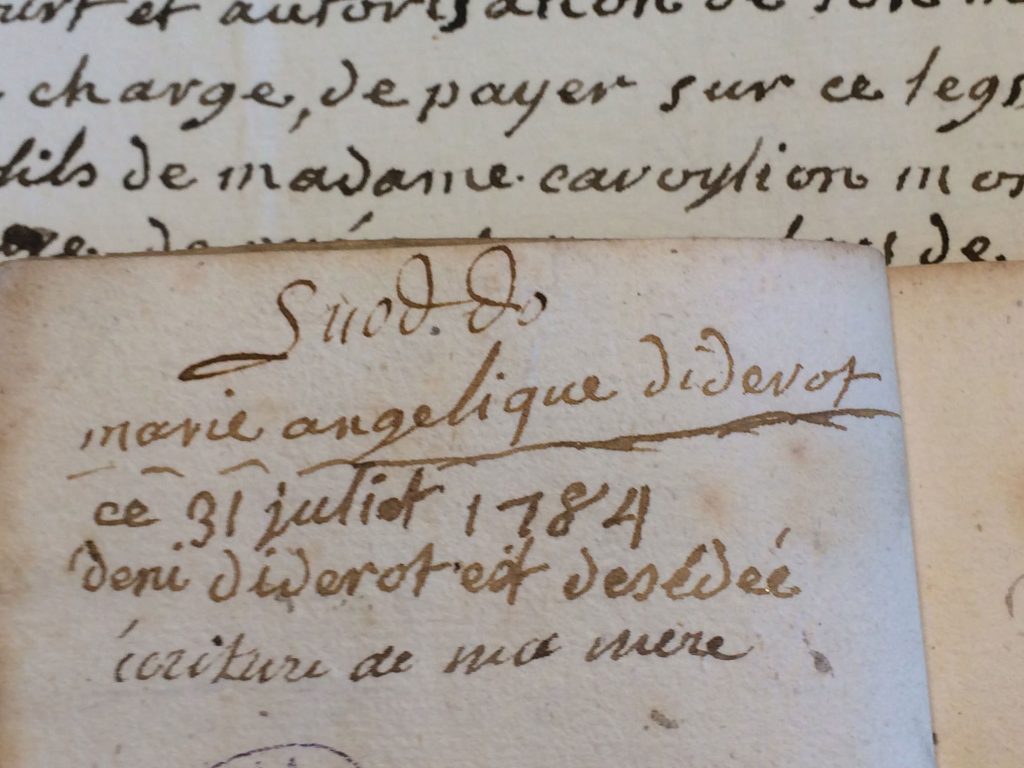 et autorisation de son
charge, de payer sur ce legs
fils de madame caroylion
de
marie angelique diderot
ce 31 juliet 1784
deni diderot est desédéé
écriture de ma mere